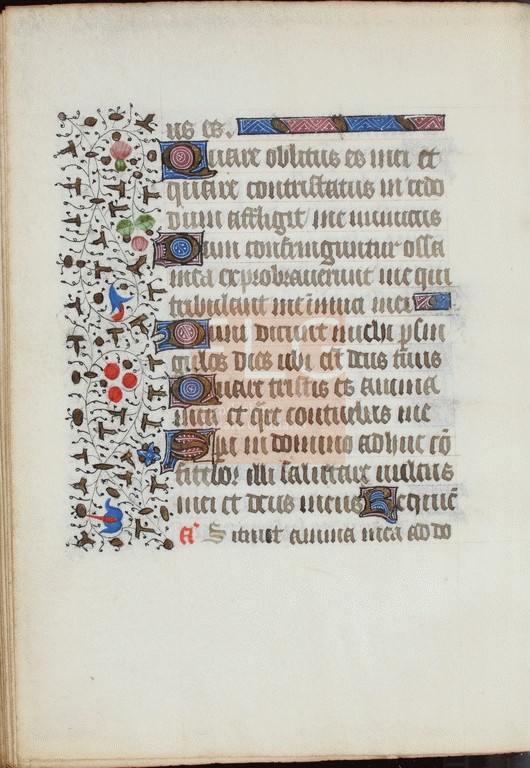 us es.
Quare oblitus es mei et
quare contristatus incedo
dum affligit me inimicus
Dum confringuntur ossa
mea exprobraverunt me qui
tribulant me inimici mei
Dum dicunt michi p̱ sin
gulos dies ubi est deus tuus
Quare tristis es anima
mea et q̄re conturbas me
Spera in domino adhuc cō
fitebor illi salutare vultus
mei et deus meus Requiē
A Sitivit anima mea ad do